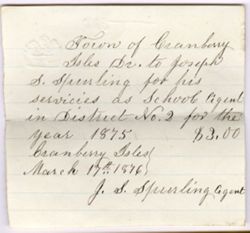 Town of Cranberry
Isles Dr. to Joseph
S. Spurling for his
servicies as School Agent
in District No. 2 for the
year 1875 $3.00
Cranberry Isles
March 17th 1876
J. S. Spurling Agent